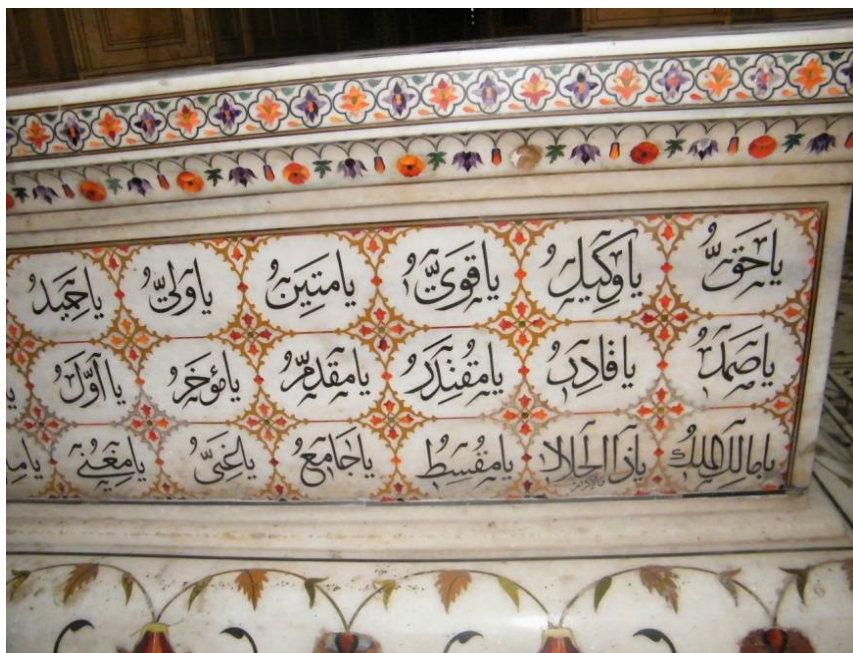 يا حقُّ يا وكيلُ يا قويُّ يا متينُ يا وليُّ يا حميدُ
يا صمدُ يا قادرُ يا مقتدرُ يا مقدمُ يا مؤخرُ يا اوّلُ
يا مالك الملك يا ذا الجلال والاكرام يا مقسطُ يا جامعُ يا غنيُّ يا مغني